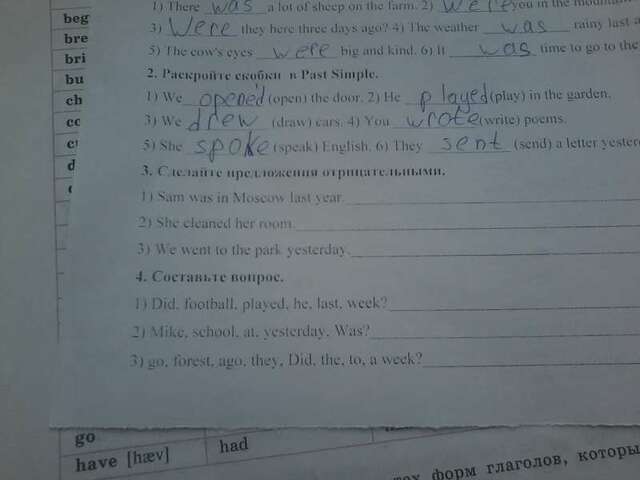 1) There was a lot of sheep on the farm. 2) Were you in the mountain
3) Were they here three days ago? 4) The weather was rainy last
5) The cow's eyes were big and kind. 6) It was time to go to the
2. Раскройте скобки в Past Simple.
1) We opened (open) the door. 2) He played (play) in the garden.
3) We drew (draw) cars. 4) You wrote (write) poems.
5) She spoke (speak) English. 6) They sent (send) a letter yester
3. Сделайте предложения отрицательными.
1) Sam was in Moscow last year.
2) She cleaned her room.
3) We went to the park yesterday.
4. Составьте вопрос.
1) Did, football, played, he, last, week?
2) Mike, school, at, yesterday, Was?
3) go, forest, ago, they, Did, the, to, a week?
beg
bre
bri
bu
ch
co
c
d
go
have [hæv] had
тех форм глаголов, которы